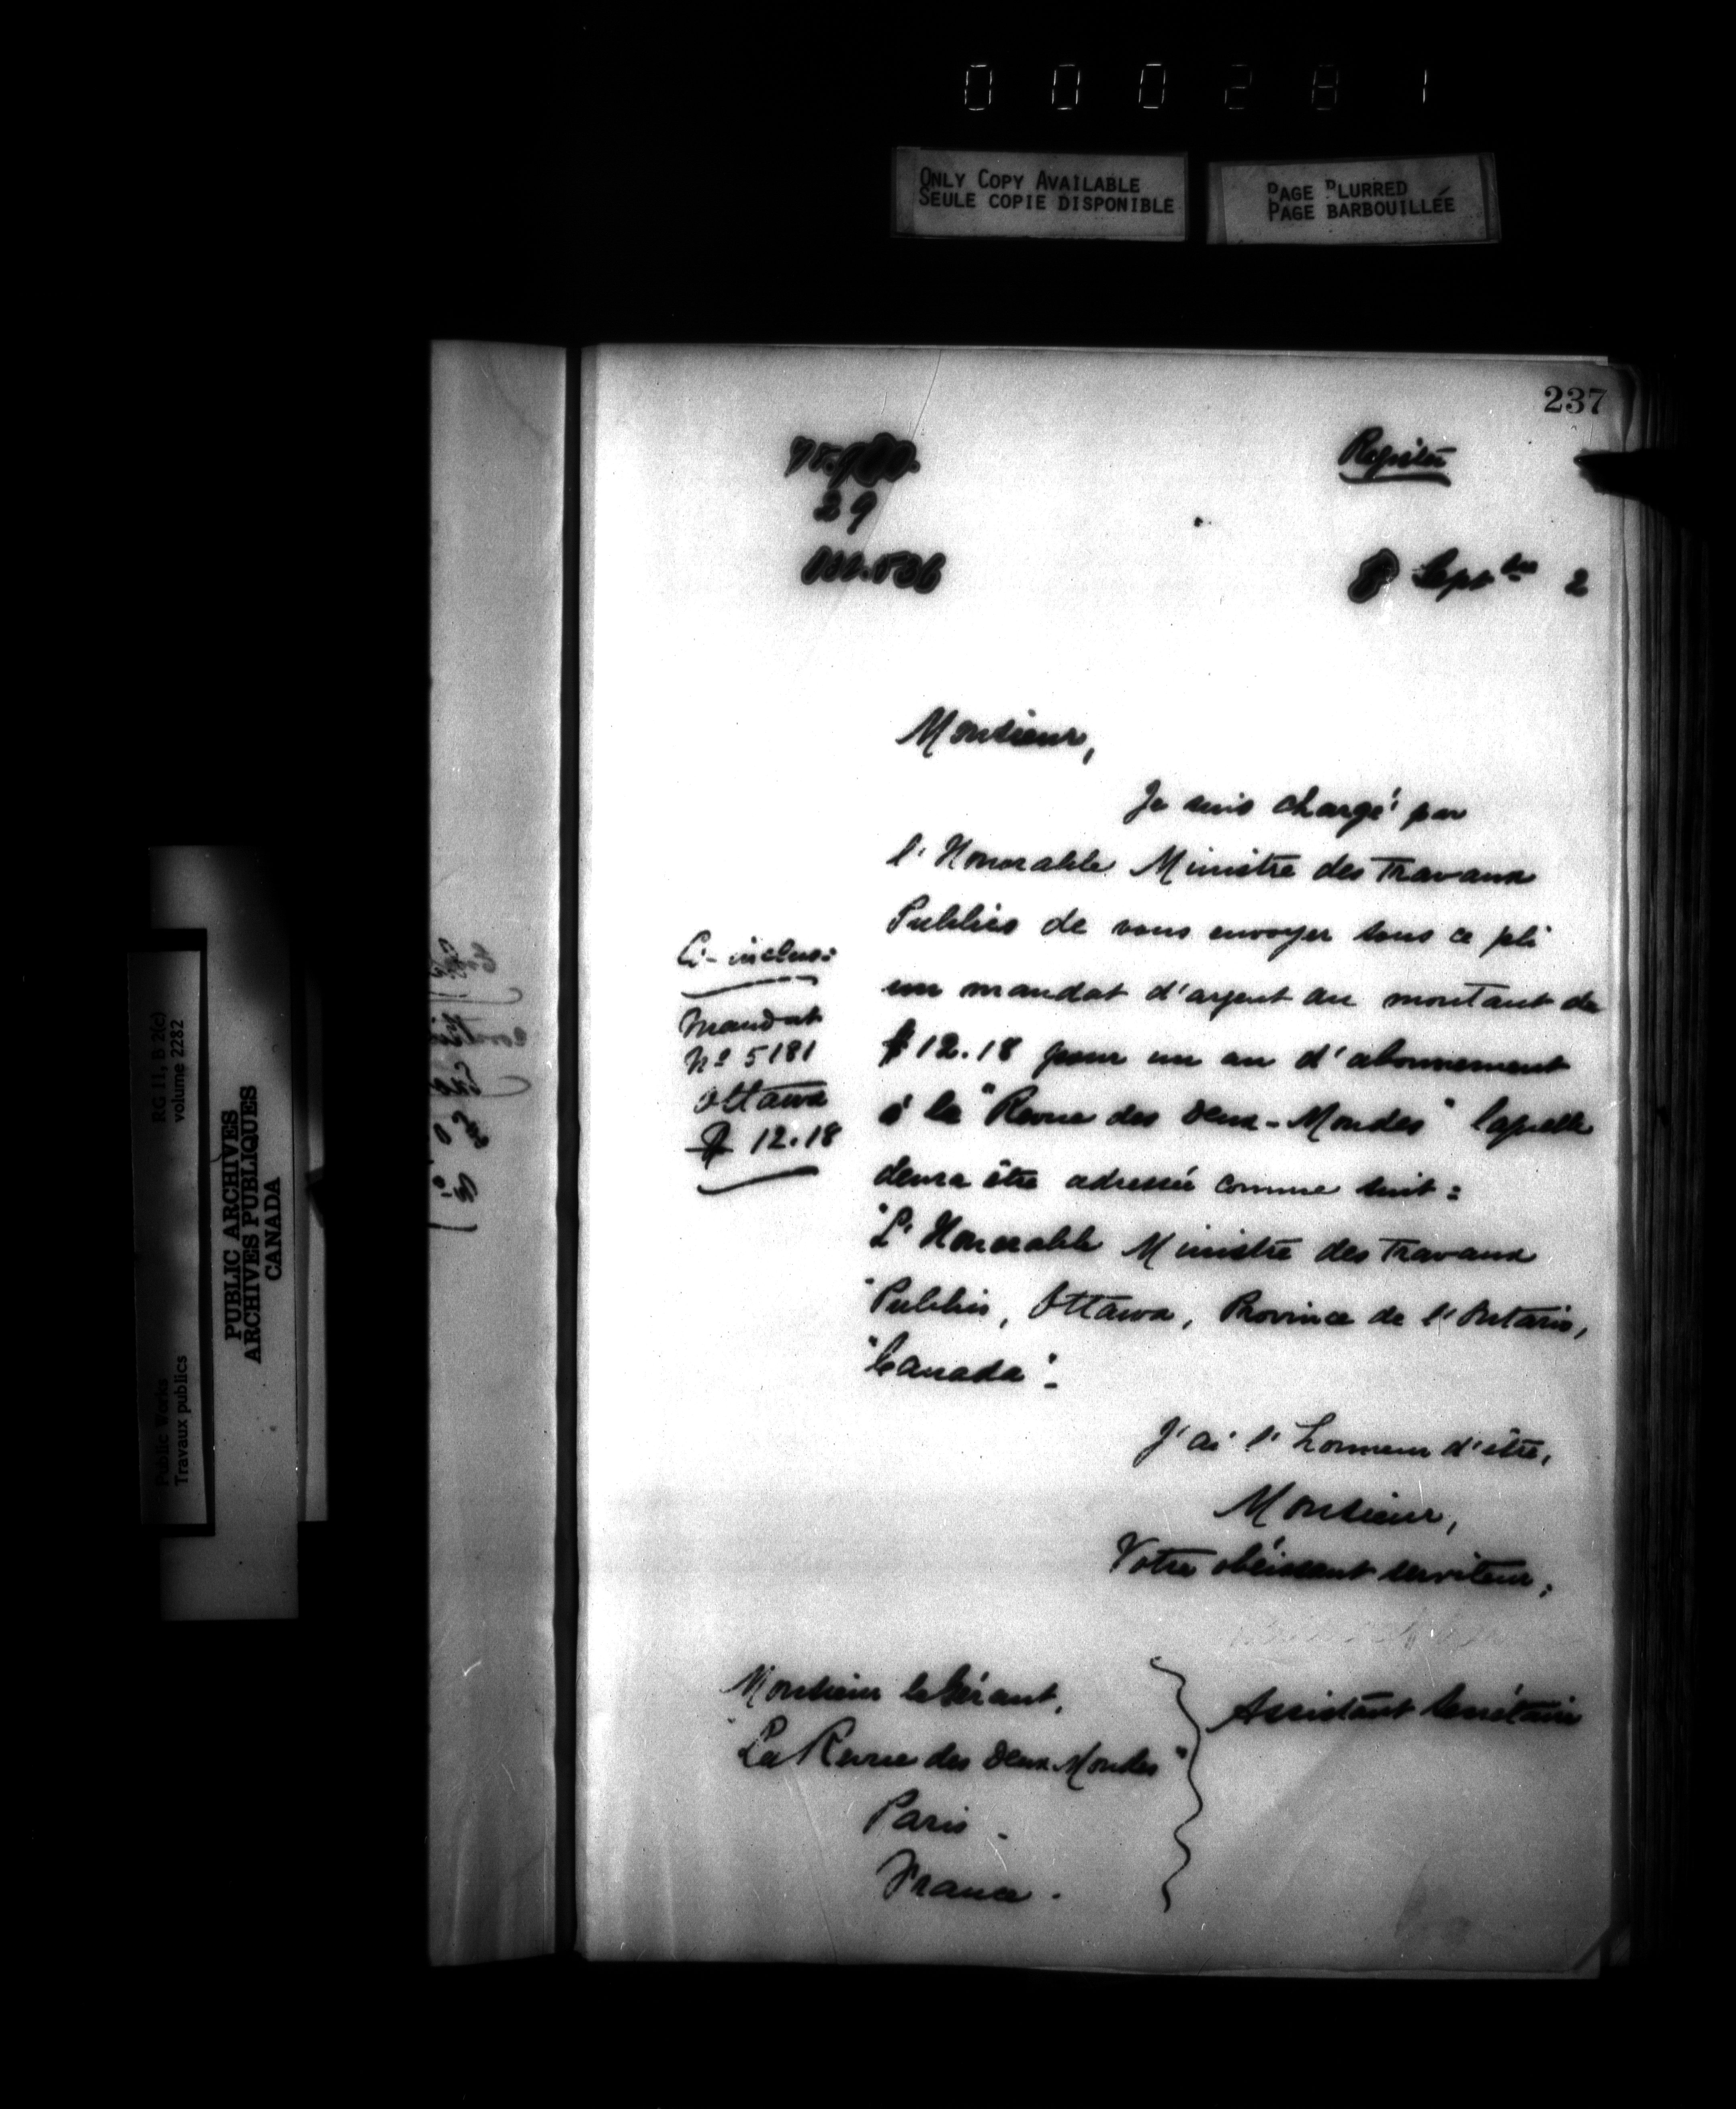 000281
ONLY COPY AVAILABLE
SEULE COPIE DISPONIBLE
PAGE BLURRED
PAGE BARBOUILLÉE
237
29
8 Septbre 2
Monsieur,
Je suis chargé par
l'Honorable Ministre des Travaux
Publics de vous envoyer sous ce pli
un mandat d'argent au montant de
$12.18 pour un an d'abonnement
à la "Revue des Deux-Mondes" laquelle
devra être adressée comme suit:
"L'Honorable Ministre des Travaux
"Publics, Ottawa, Province de l'Ontario,
"Canada".
Ci-inclus:
Mandat
No 5181
Ottawa
$12.18
J'ai l'honneur d'être,
Monsieur,
Votre obéissant serviteur,
Assistant Secrétaire
Monsieur le Gérant,
"La Revue des Deux-Mondes"
Paris.
France.
Public Works
Travaux publics
RG 11, B 2(c)
volume 2282
PUBLIC ARCHIVES
ARCHIVES PUBLIQUES
CANADA